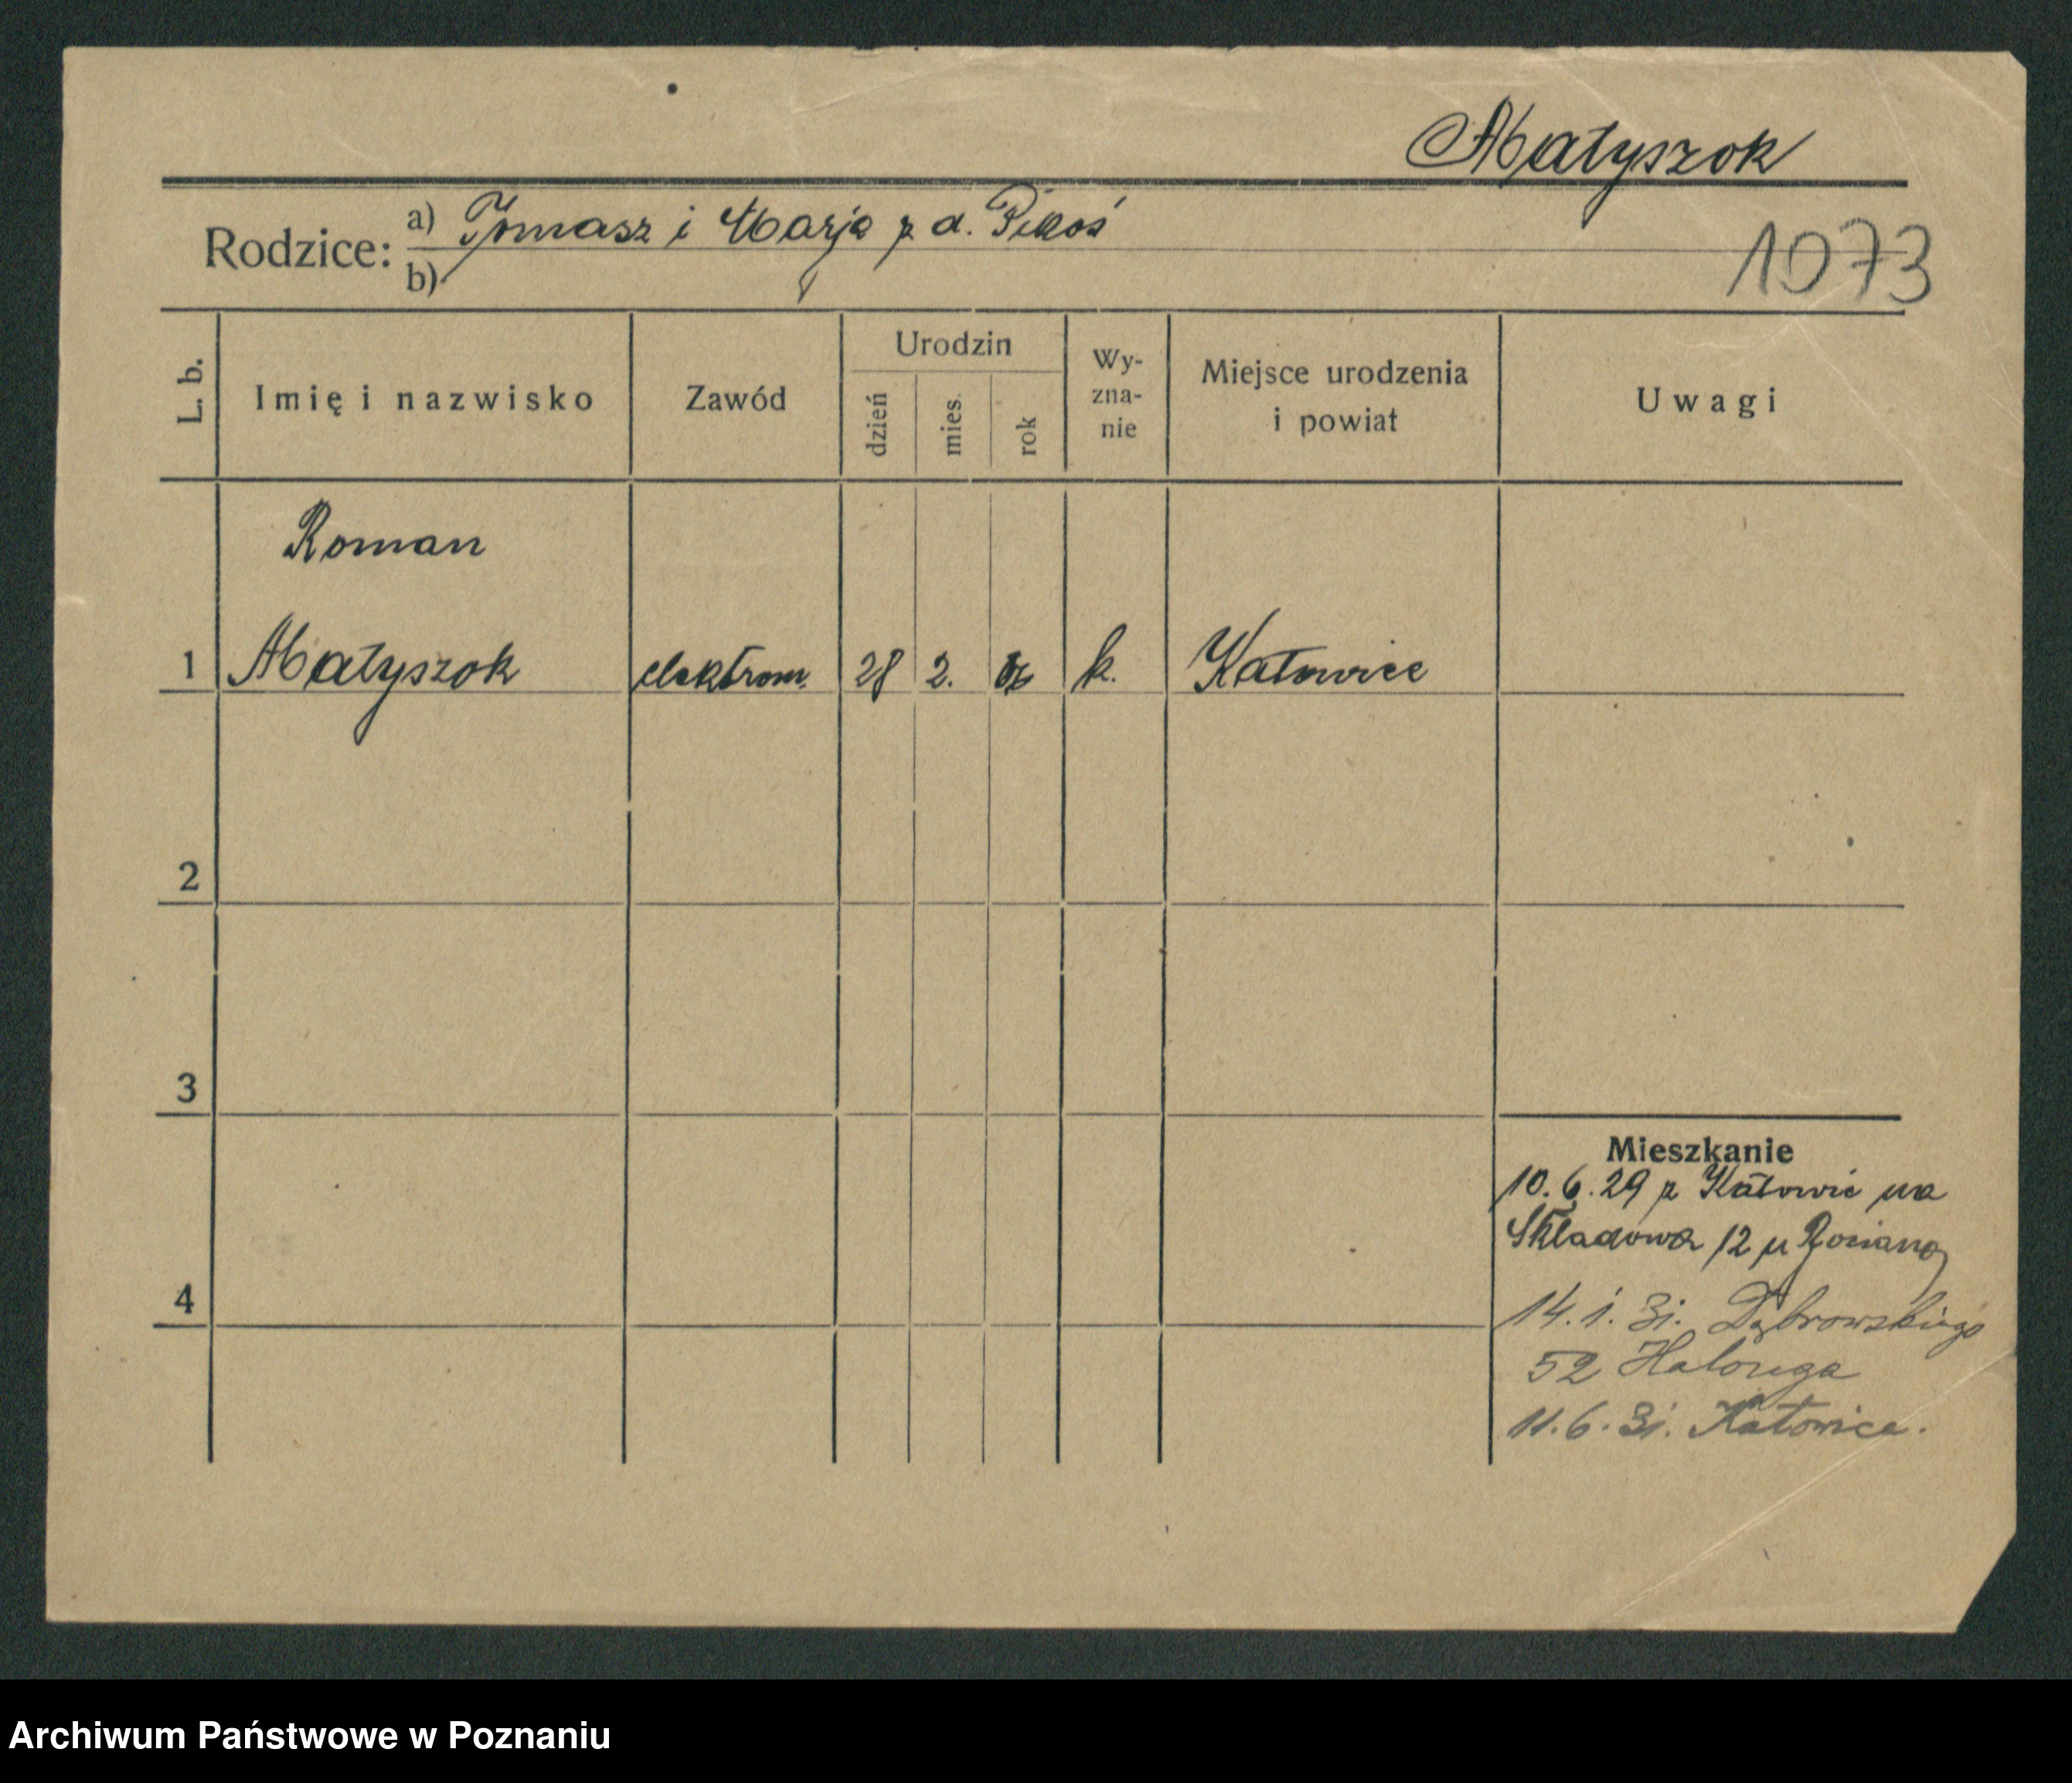 Małyszok
Rodzice: a) Tomasz i Marja z d.
b)
1073
L. b.
Imię i nazwisko
Zawód
Urodzin
dzień
mies.
rok
Wy-
zna-
nie
Miejsce urodzenia
i powiat
Uwagi
Roman
1 Małyszok elektrom. 28 2. k. Katowice
2
3
4
Mieszkanie
10.6.29 z Katowic na
Składowa 12 u
14.1.31. Dąbrowskiego
52
11.6.31. Katowice.
Archiwum Państwowe w Poznaniu